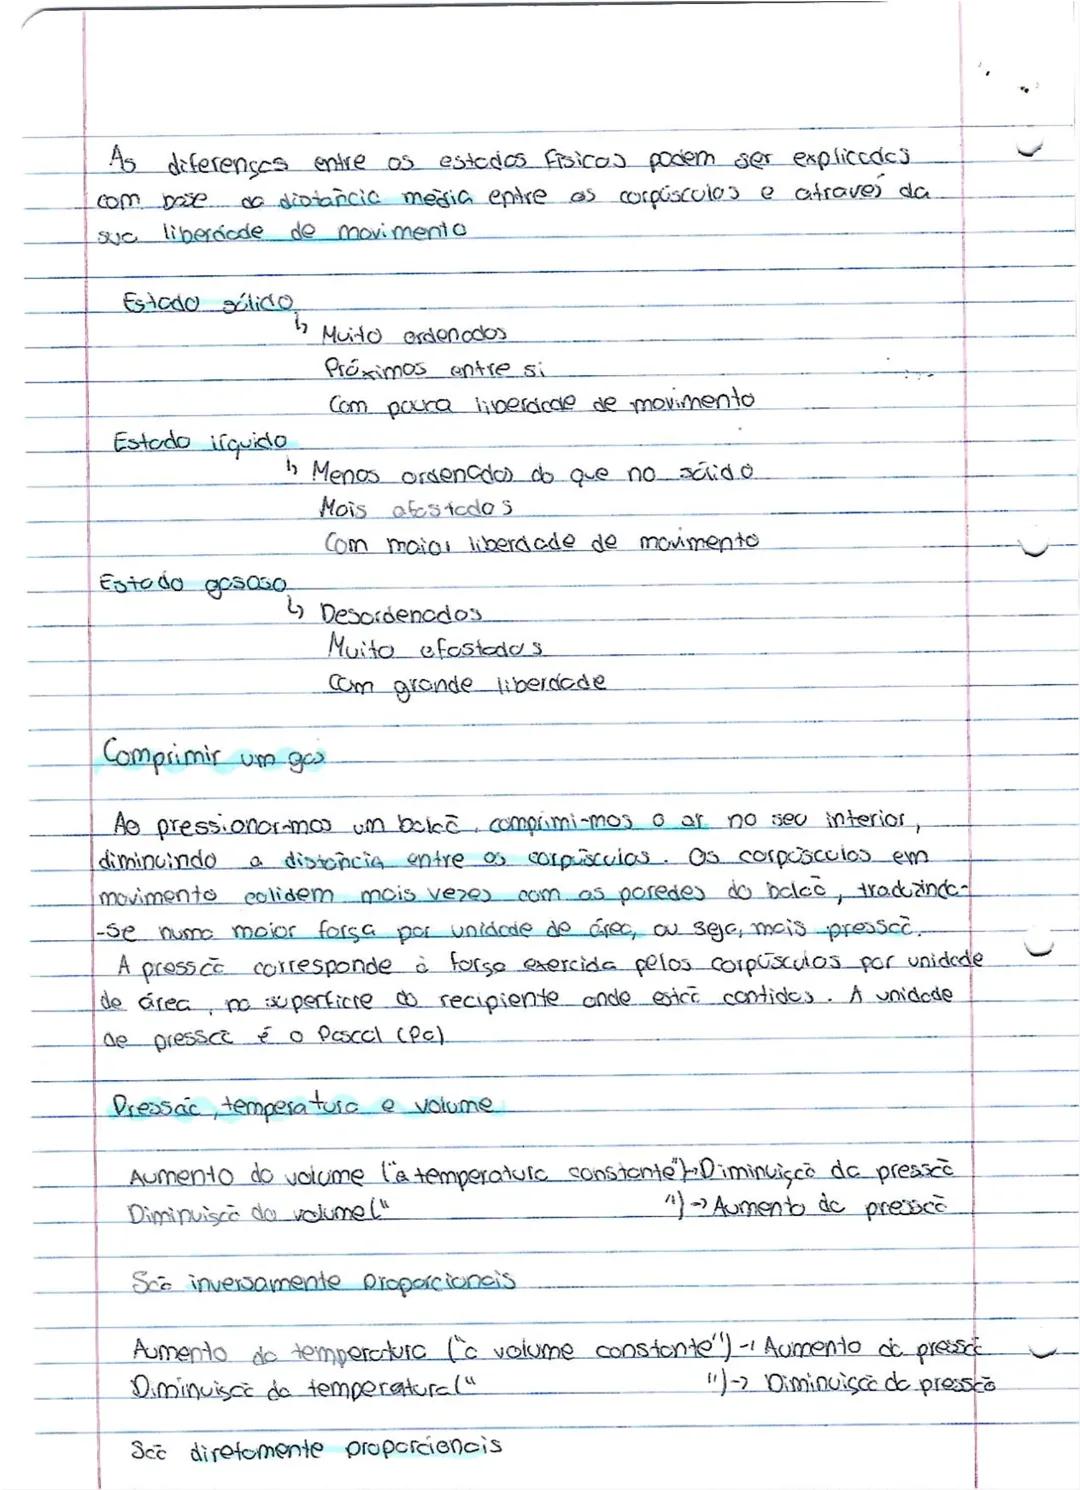 As diferenças entre os estados físicos podem ser explicadas
com base da distância média entre os corpúsculos e através da
sua liberdade de movimento
Estado sólido
↳ Muito ordenados
Próximos entre si
Com pouca liberdade de movimento
Estado líquido
↳ Menos ordenados do que no sólido
Mais afastados
Com maior liberdade de movimento
Estado gasoso
↳ Desordenados
Muito afastados
Com grande liberdade
Comprimir um gás
Ao pressionar-mos um balão, comprimi-mos o ar no seu interior,
diminuindo a distância entre os corpúsculos. Os corpúsculos em
movimento colidem mais vezes com as paredes do balão, traduzindo-
-se numa maior força por unidade de área, ou seja, mais pressão.
A pressão corresponde à força exercida pelos corpúsculos por unidade
de área, na superfície do recipiente onde estão contidos. A unidade
de pressão é o Pascal (Pa)
Pressão, temperatura e volume
Aumento do volume ("à temperatura constante")→Diminuição da pressão
Diminuição do volume (" ")→Aumento da pressão
São inversamente proporcionais
Aumento da temperatura ("a volume constante")→Aumento da pressão
Diminuição da temperatura (" ")→Diminuição da pressão
São diretamente proporcionais